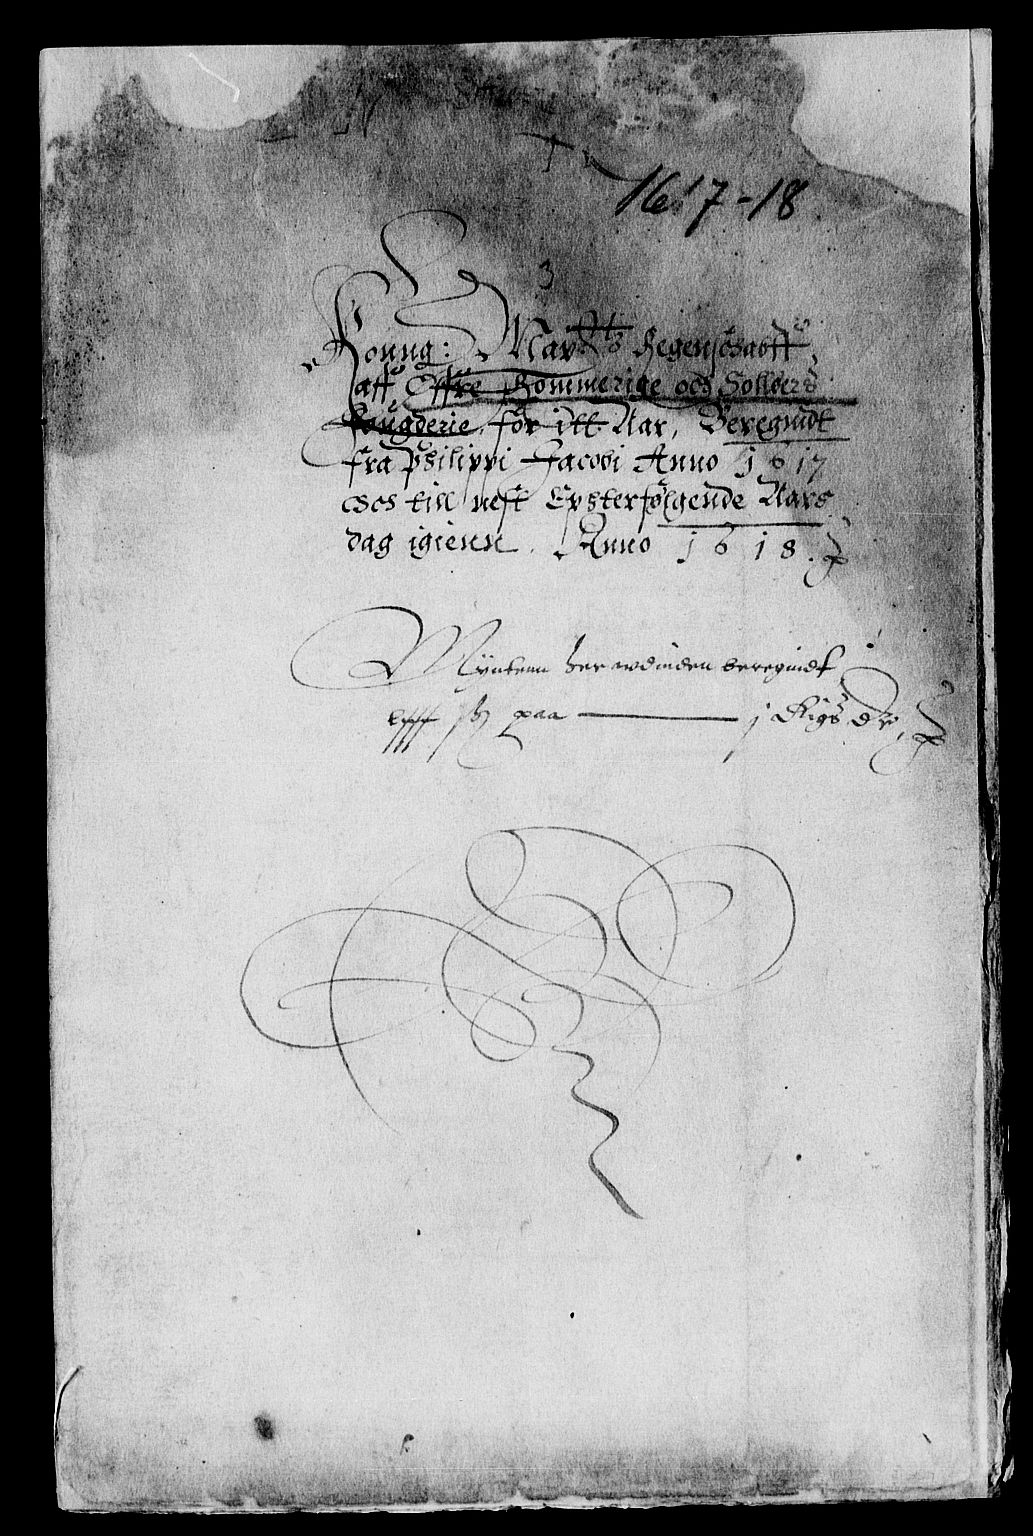 1617-18
3
Konng: May:tts Regenschaff
aff Øffre Rommerige och Sollöers
fougderie, for itt Aar, Beregnidt
fra Philippi Jacobi Anno 1617
och till nest Epfterfølgende Aars
dag igienn. Anno 1618.
Myntenn her udinden beregnidt
paa — j Rigs dr,